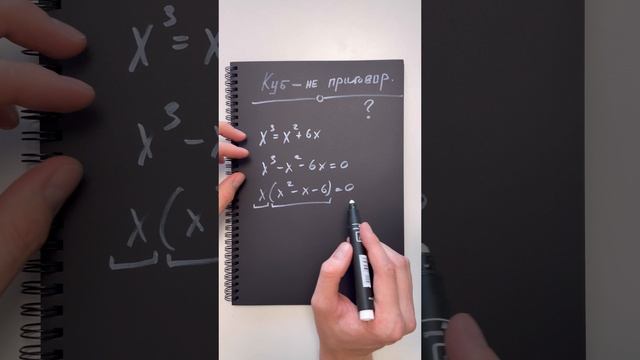 Куб — не приговор.
?
x³ = x² + 6x
x³ - x² - 6x = 0
x(x² - x - 6) = 0